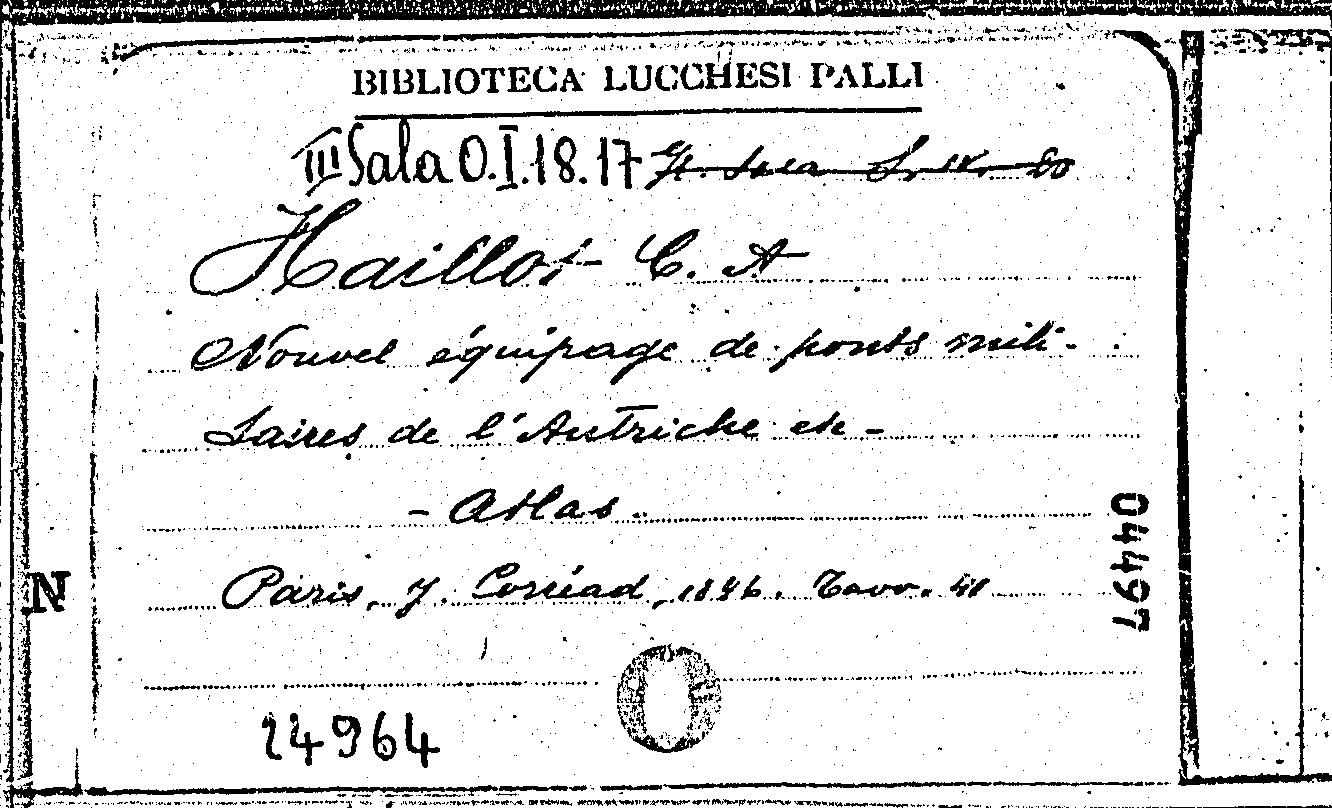 BIBLIOTECA LUCCHESI PALLI
III Sala O.I.18.17
Haillot C. A
Nouvel équipage de ponts mili-
taires de l'Autriche etc -
- Atlas.
Paris, J. Corréard, 1846. Tavv. 41
24964
04497
N